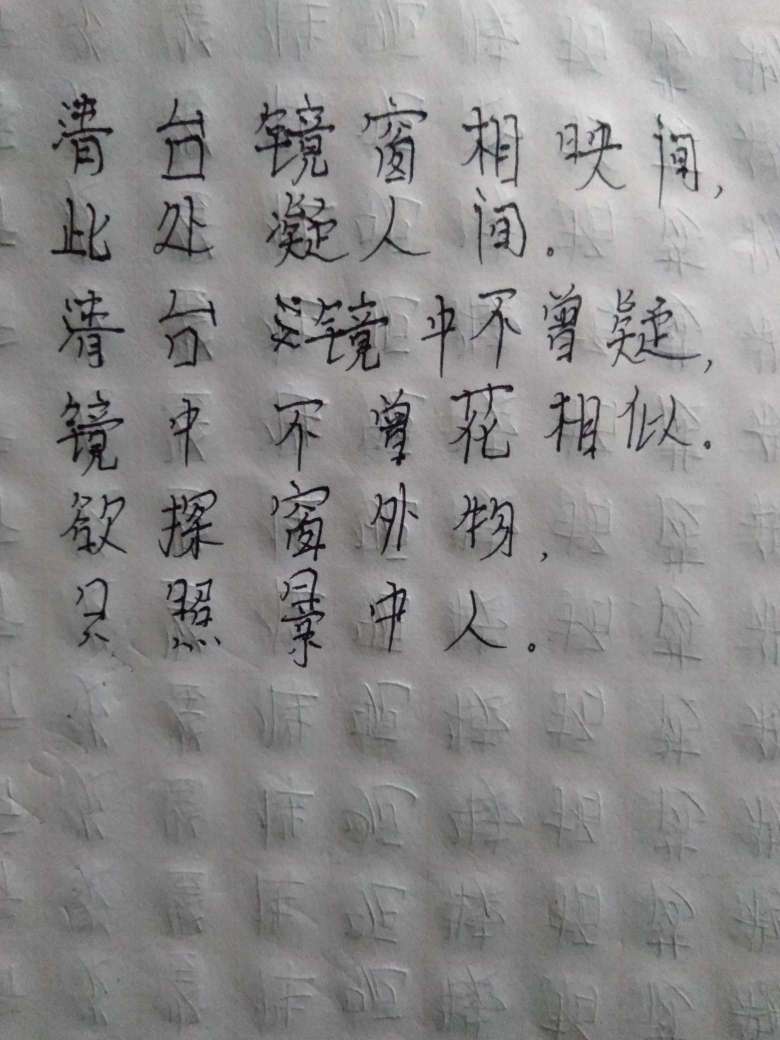 清台镜窗相映间，
此处凝人间。
清台镜中不曾疑，
镜中不曾花相似。
欲探窗外物，
只照景中人。